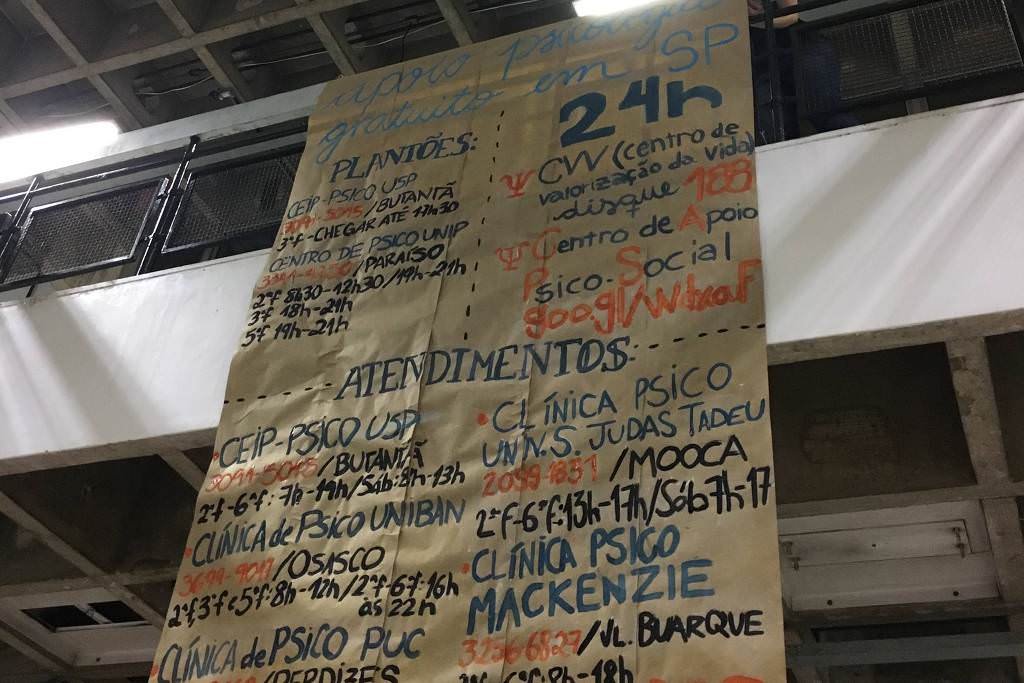 apoio psicológico
gratuito em SP
PLANTÕES:
CEIP-PSICO USP
3091-5015/BUTANTÃ
3ªf-CHEGAR ATÉ 17h30
CENTRO DE PSICO UNIP
/PARAÍSO
2ªf 8h30-12h30/19h-21h
3ªf 18h-21h
5ªf 19h-21h
24h
Ψ CVV (centro de
valorização da vida)
disque 188
Ψ Centro de Apoio
Psico-Social
goo.gl/
ATENDIMENTOS:
•CEIP-PSICO USP
3091-5015/BUTANTÃ
2ªf-6ªf: 7h-19h/Sáb: 8h-13h
•CLÍNICA de PSICO UNIBAN
3699-9017/OSASCO
2ªf, 3ªf e 5ªf: 8h-12h/2ªf-6ªf: 16h
às 22h
•CLÍNICA de PSICO PUC
/PERDIZES
•CLÍNICA PSICO
UN.N.S. JUDAS TADEU
2099-1831/MOOCA
2ªf-6ªf: 13h-17h/Sáb 7h-17
•CLÍNICA PSICO
MACKENZIE
3256-6827/VL. BUARQUE
2ªf-6ªf: 8h-18h